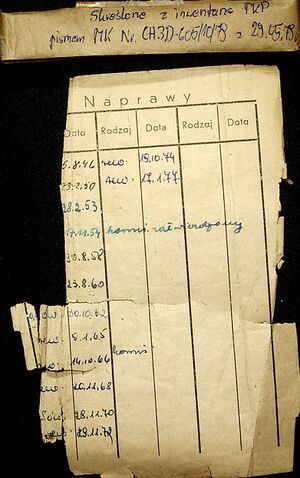 Skreślono z inwentarza PKP
pismem MK Nr. CH3D-605/10/79 z 29.05.79
Naprawy
Data Rodzaj Data Rodzaj Data
5.8.46 rew. 19.10.74
2.50 rew. 17.1.77
28.2.53
17.11.54
30.8.58
23.8.60
30.10.62
rew. 9.1.65
14.10.66
rew. 20.11.68
28.11.70
29.11.72